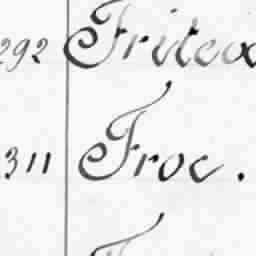 292 Fritea
311 Froc.